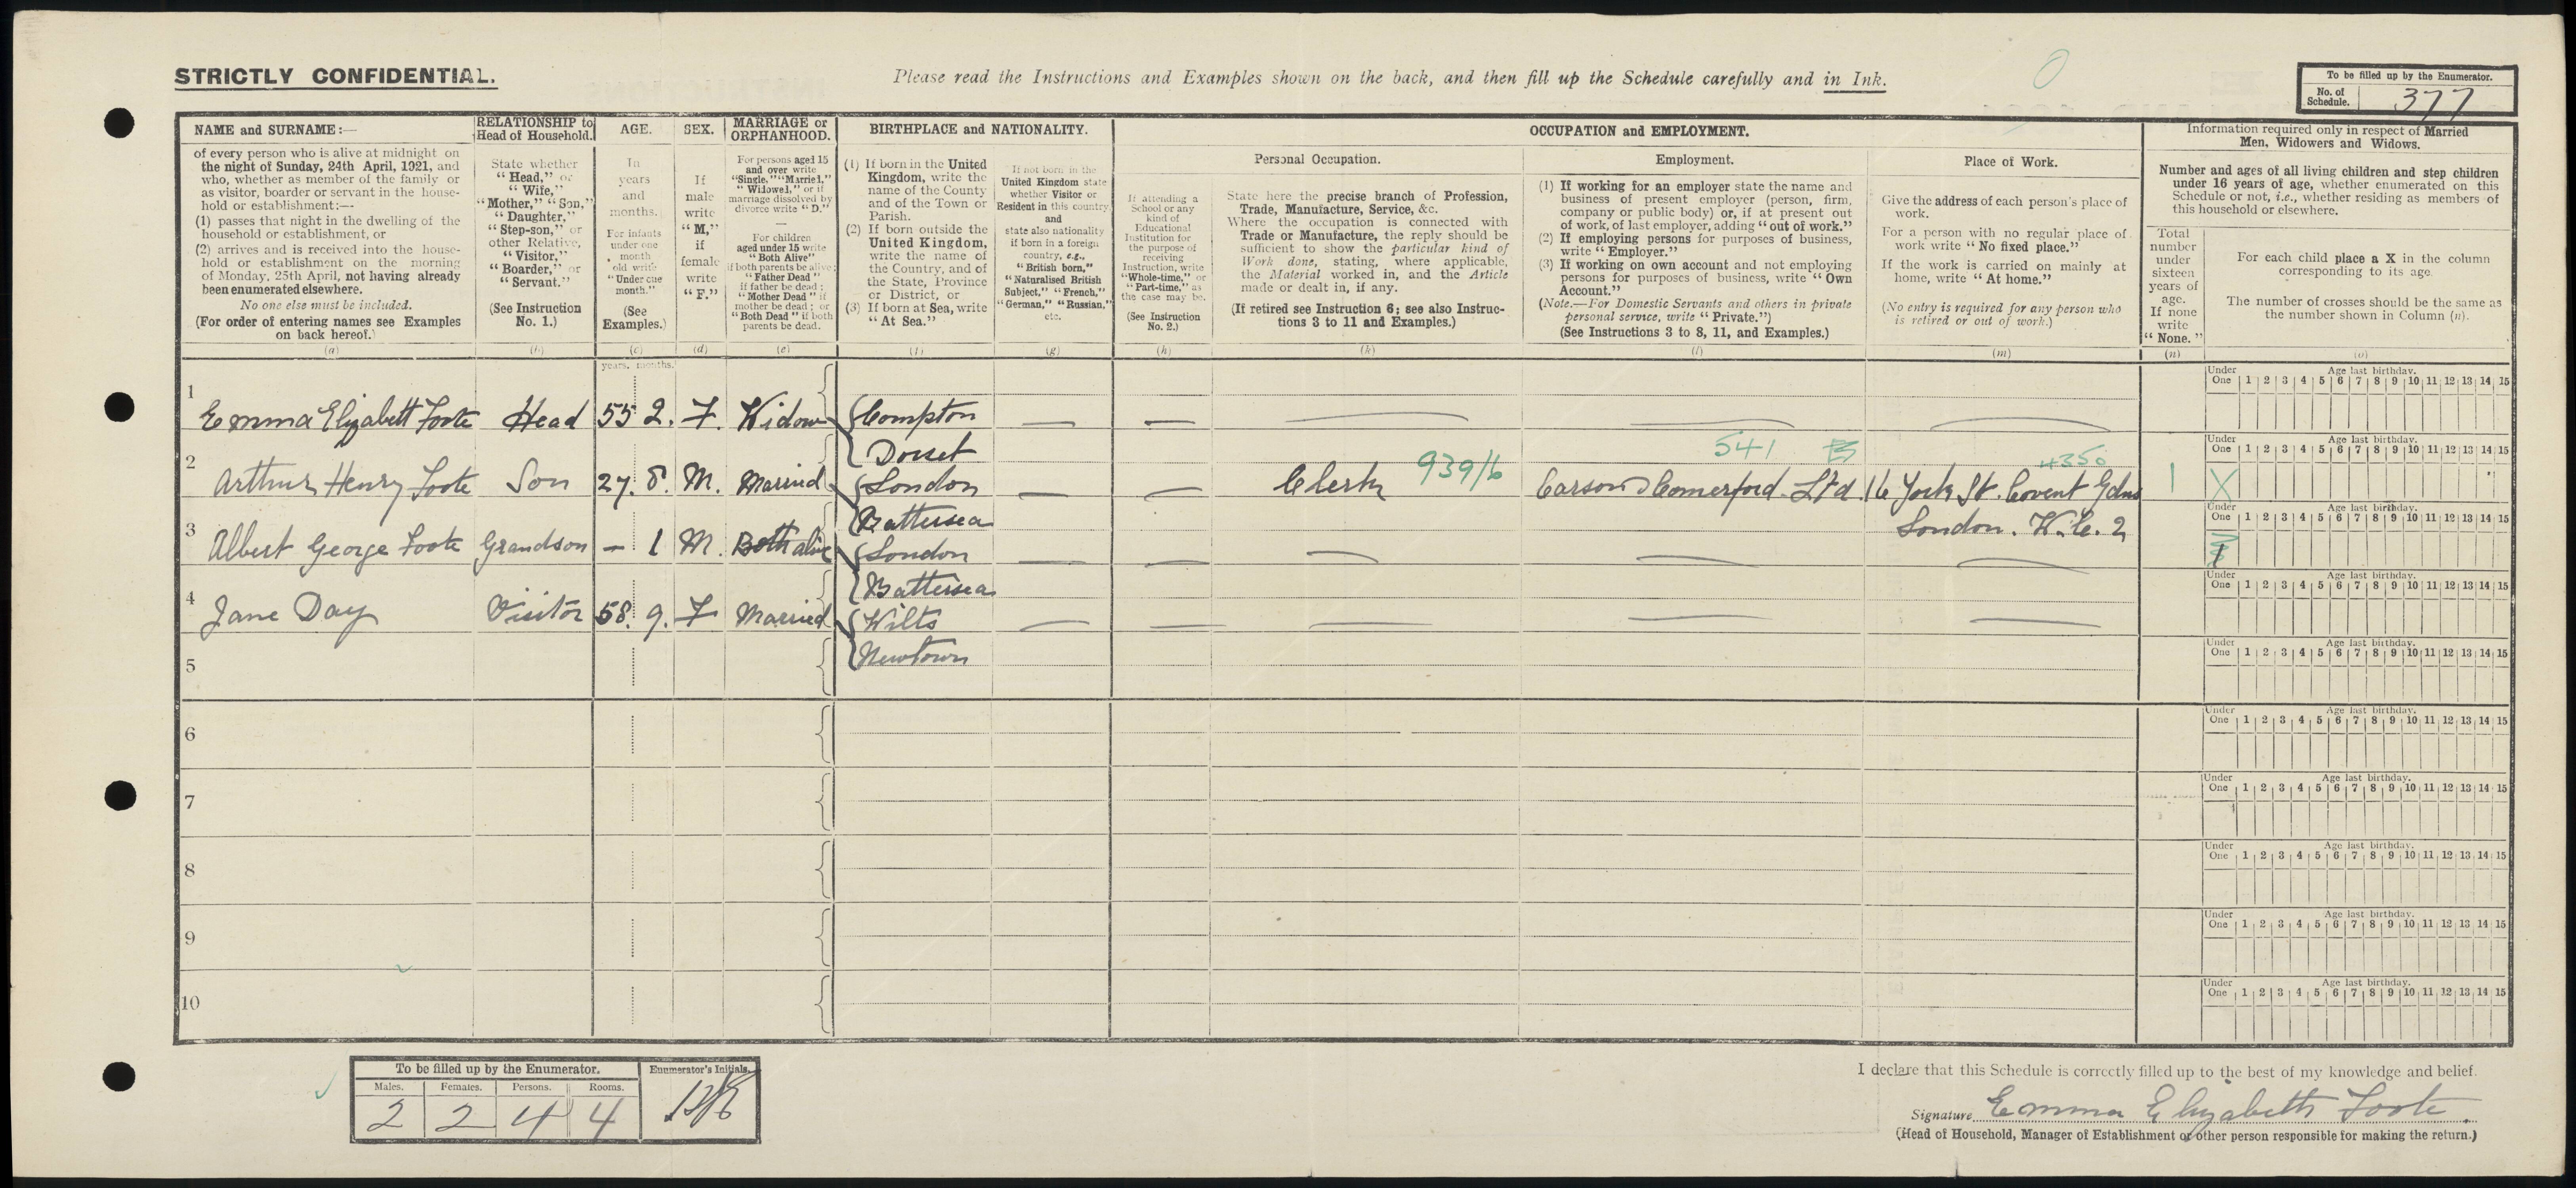 STRICTLY CONFIDENTIAL.
Please read the Instructions and Examples shown on the back, and then fill up the Schedule carefully and in Ink.
To be filled up by the Enumerator.
No. of Schedule. 377
NAME and SURNAME:—
of every person who is alive at midnight on
the night of Sunday, 24th April, 1921, and
who, whether as member of the family or
as visitor, boarder or servant in the house-
hold or establishment:—
(1) passes that night in the dwelling of the
household or establishment, or
(2) arrives and is received into the house-
hold or establishment on the morning
of Monday, 25th April, not having already
been enumerated elsewhere.
No one else must be included.
(For order of entering names see Examples
on back hereof.)
(a)
RELATIONSHIP to
Head of Household.
State whether
"Head," or
"Wife,"
"Mother," "Son,"
"Daughter,"
"Step-son," or
other Relative,
"Visitor,"
"Boarder," or
"Servant."
(See Instruction
No. 1.)
(b)
AGE.
In
years
and
months.
For infants
under one
month
old write
"Under one
month."
(See
Examples.)
(c)
SEX.
If
male
write
"M,"
if
female
write
"F."
(d)
MARRIAGE or
ORPHANHOOD.
For persons aged 15
and over write
"Single," "Married,"
"Widowed," or if
marriage dissolved by
divorce write "D."
For children
aged under 15 write
"Both Alive"
if both parents be alive;
"Father Dead"
if father be dead;
"Mother Dead" if
mother be dead; or
"Both Dead" if both
parents be dead.
(e)
BIRTHPLACE and NATIONALITY.
(1) If born in the United
Kingdom, write the
name of the County
and of the Town or
Parish.
(2) If born outside the
United Kingdom,
write the name of
the Country, and of
the State, Province
or District, or
(3) If born at Sea, write
"At Sea."
(f)
If not born in the
United Kingdom state
whether Visitor or
Resident in this country
and
state also nationality
if born in a foreign
country, e.g.,
"British born,"
"Naturalised British
Subject," "French,"
"German," "Russian,"
etc.
(g)
OCCUPATION and EMPLOYMENT.
If attending a
School or any
kind of
Educational
Institution for
the purpose of
receiving
Instruction, write
"Whole-time," or
"Part-time," as
the case may be.
(See Instruction
No. 2.)
(h)
Personal Occupation.
State here the precise branch of Profession,
Trade, Manufacture, Service, &c.
Where the occupation is connected with
Trade or Manufacture, the reply should be
sufficient to show the particular kind of
Work done, stating, where applicable,
the Material worked in, and the Article
made or dealt in, if any.
(If retired see Instruction 6; see also Instruc-
tions 3 to 11 and Examples.)
(k)
Employment.
(1) If working for an employer state the name and
business of present employer (person, firm,
company or public body) or, if at present out
of work, of last employer, adding "out of work."
(2) If employing persons for purposes of business,
write "Employer."
(3) If working on own account and not employing
persons for purposes of business, write "Own
Account."
(Note.—For Domestic Servants and others in private
personal service, write "Private.")
(See Instructions 3 to 8, 11, and Examples.)
(l)
Place of Work.
Give the address of each person's place of
work.
For a person with no regular place of
work write "No fixed place."
If the work is carried on mainly at
home, write "At home."
(No entry is required for any person who
is retired or out of work.)
(m)
Information required only in respect of Married
Men, Widowers and Widows.
Number and ages of all living children and step children
under 16 years of age, whether enumerated on this
Schedule or not, i.e., whether residing as members of
this household or elsewhere.
Total
number
under
sixteen
years of
age.
If none
write
"None."
(n)
For each child place a X in the column
corresponding to its age.
The number of crosses should be the same as
the number shown in Column (n).
(o)
years. months.
Under One Age last birthday. 1 2 3 4 5 6 7 8 9 10 11 12 13 14 15
1 Emma Elizabeth Foote Head 55 2. F. Widow Compton
Dorset
541
Under One Age last birthday. 1 2 3 4 5 6 7 8 9 10 11 12 13 14 15
2 Arthur Henry Foote Son 27. 8. M. Married London Clerk 939/6 Carson & Comerford Ltd 16 York St. Covent Gdns 4350 1 X
Battersea London. W.C. 2
Under One Age last birthday. 1 2 3 4 5 6 7 8 9 10 11 12 13 14 15
3 Albert George Foote Grandson – 1 M. Both alive London
Battersea
Under One Age last birthday. 1 2 3 4 5 6 7 8 9 10 11 12 13 14 15
4 Jane Day Visitor 58. 9. F Married Wilts
Newtown
5 Under One Age last birthday. 1 2 3 4 5 6 7 8 9 10 11 12 13 14 15
6 Under One Age last birthday. 1 2 3 4 5 6 7 8 9 10 11 12 13 14 15
7 Under One Age last birthday. 1 2 3 4 5 6 7 8 9 10 11 12 13 14 15
8 Under One Age last birthday. 1 2 3 4 5 6 7 8 9 10 11 12 13 14 15
9 Under One Age last birthday. 1 2 3 4 5 6 7 8 9 10 11 12 13 14 15
10 Under One Age last birthday. 1 2 3 4 5 6 7 8 9 10 11 12 13 14 15
To be filled up by the Enumerator.
Males. Females. Persons. Rooms.
2 2 4 4
Enumerator's Initials.
I declare that this Schedule is correctly filled up to the best of my knowledge and belief.
Signature Emma Elizabeth Foote.
(Head of Household, Manager of Establishment or other person responsible for making the return.)